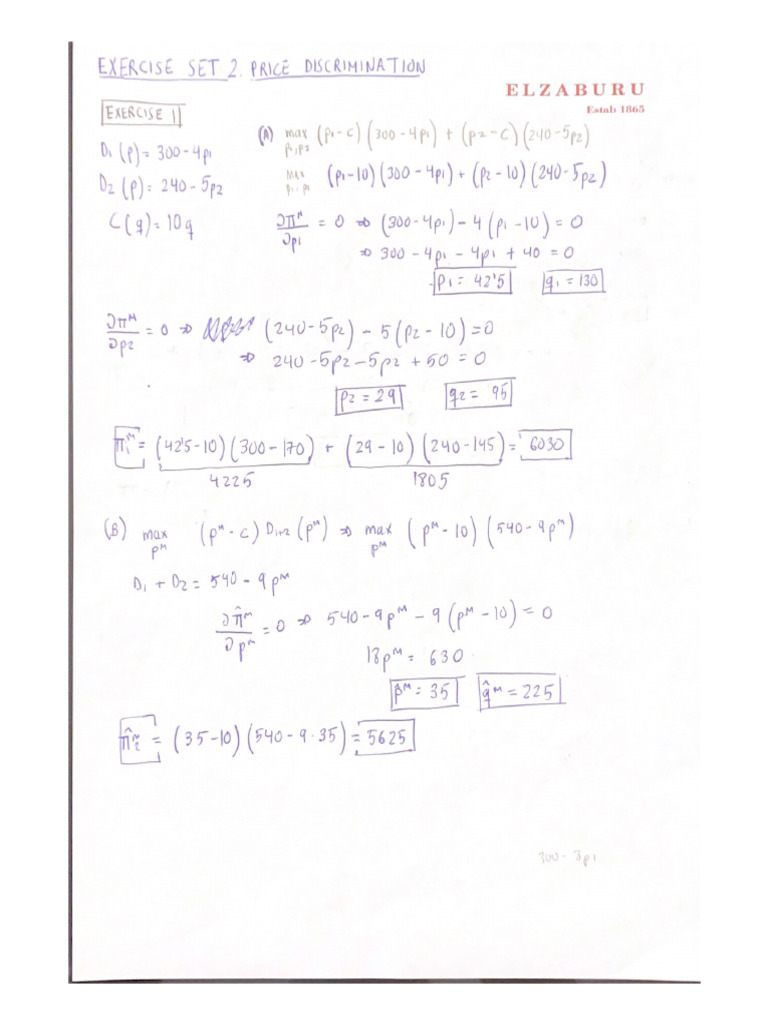 EXERCISE SET 2. PRICE DISCRIMINATION
ELZABURU
Estab 1865
EXERCISE 1
D1 (p) = 300-4p1
D2 (p) = 240-5p2
C(q) = 10q
(A) max (p1-c) (300-4p1) + (p2-c) (240-5p2)
p1,p2
max (p1-10) (300-4p1) + (p2-10) (240-5p2)
p1,p2
∂πᴹ/∂p1 = 0 ⇒ (300-4p1) - 4 (p1-10) = 0
⇒ 300-4p1-4p1+40 = 0
p1 = 42'5 q1 = 130
∂πᴹ/∂p2 = 0 ⇒ (240-5p2) - 5 (p2-10) = 0
⇒ 240-5p2-5p2+50 = 0
p2 = 29 q2 = 95
π1ᴹ = (42'5-10) (300-170) + (29-10) (240-145) = 6030
4225 1805
(B) max (pᴹ-c) D1+2 (pᴹ) ⇒ max (pᴹ-10) (540-9pᴹ)
pᴹ pᴹ
D1 + D2 = 540-9pᴹ
∂π̂ᵐ/∂pᵐ = 0 ⇒ 540-9pᴹ - 9 (pᴹ-10) = 0
18pᴹ = 630
p̂ᴹ = 35 q̂ᴹ = 225
π̂2ᵐ = (35-10) (540-9·35) = 5625
300-3p1